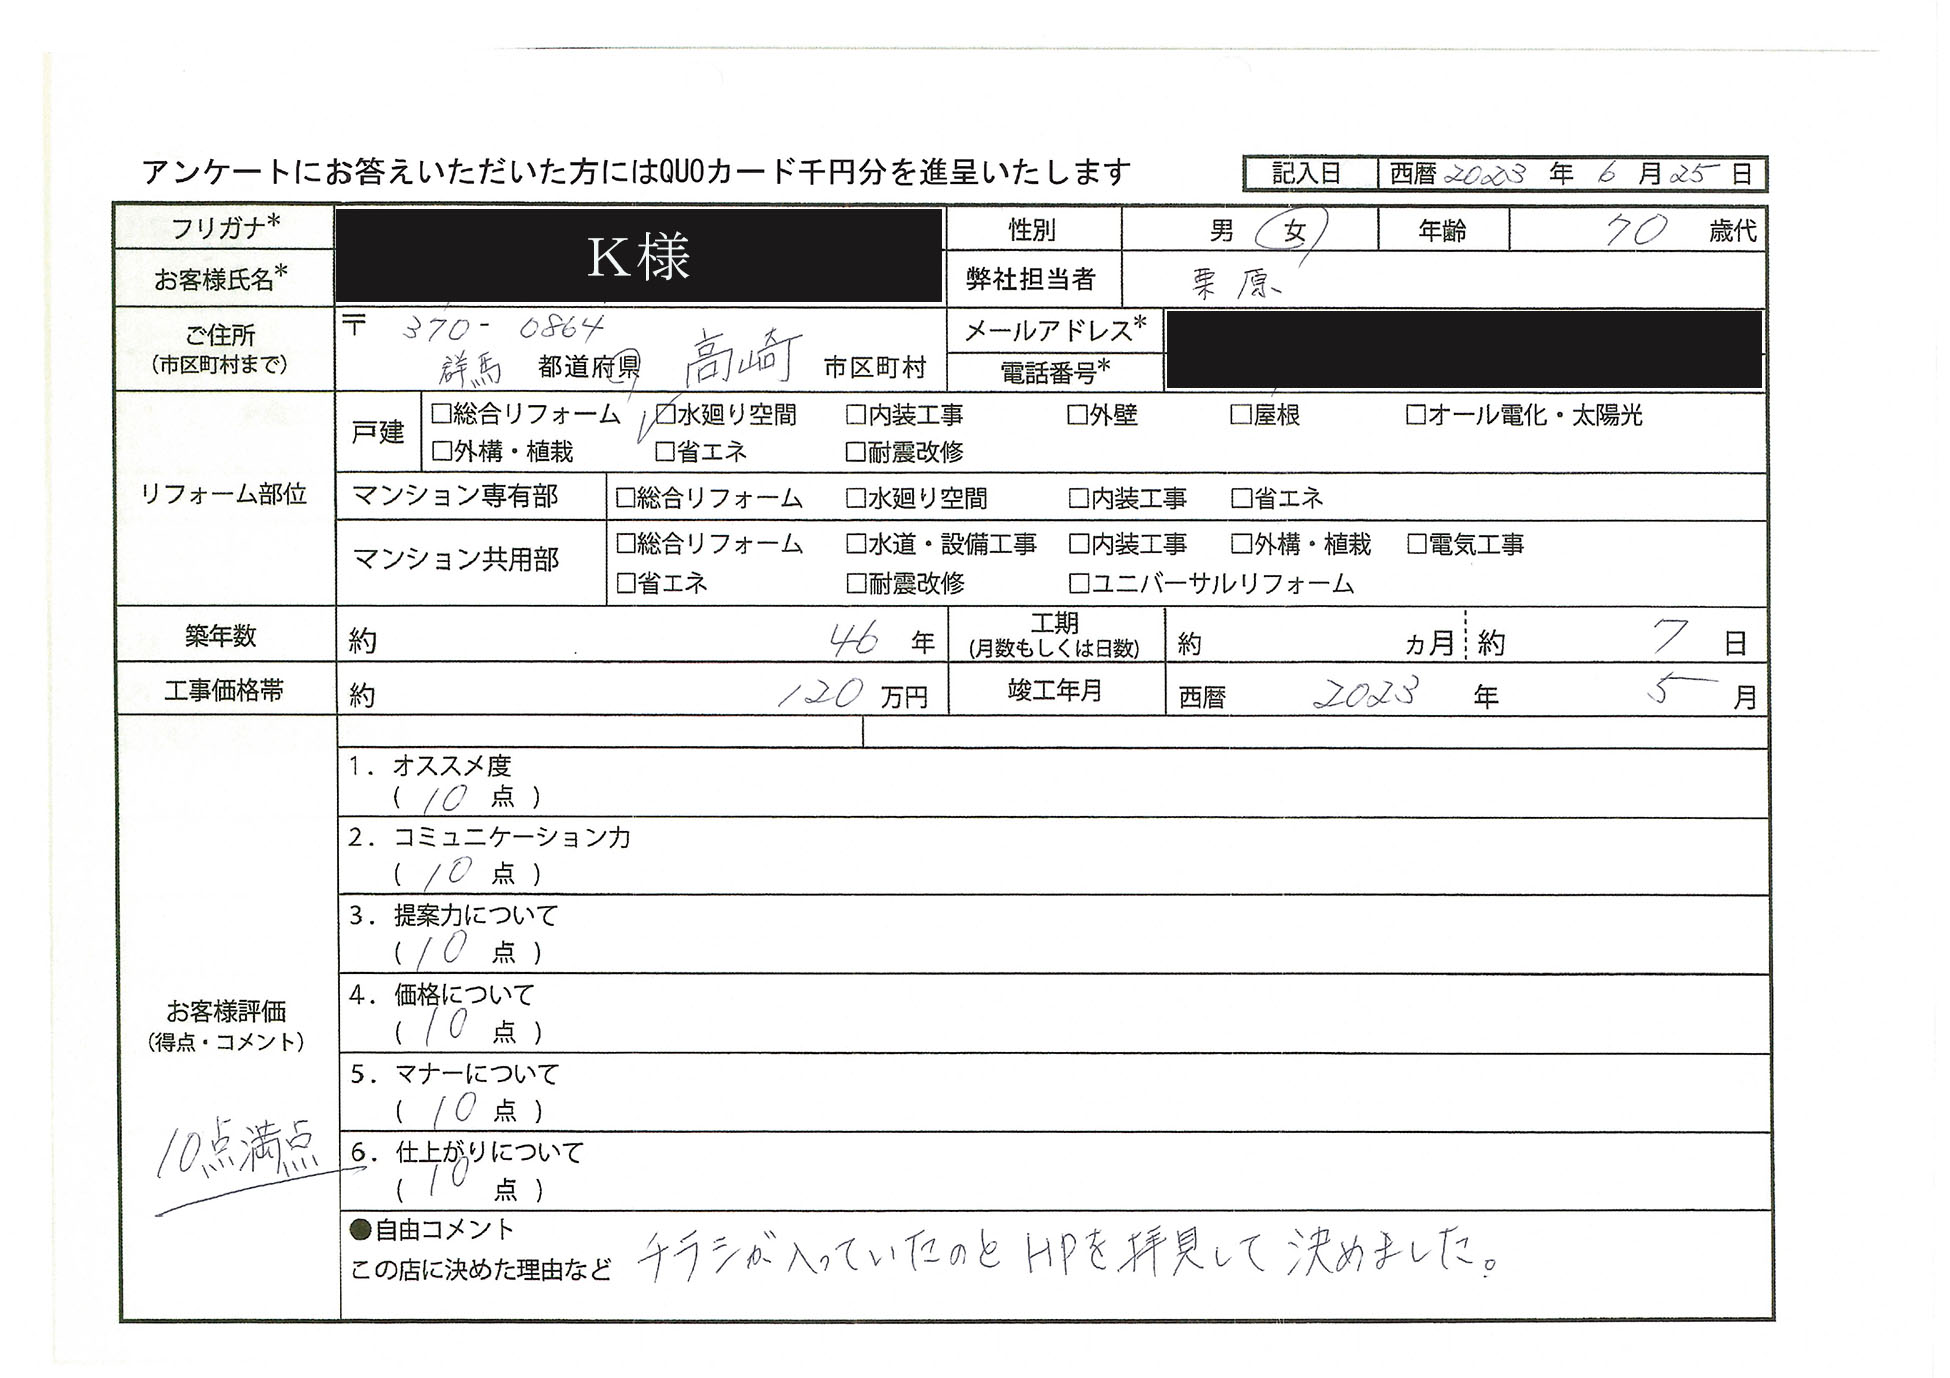 アンケートにお答えいただいた方にはQUOカード千円分を進呈いたします
記入日 西暦2023 年 6 月25 日
フリガナ* K様 性別 男 女 年齢 70 歳代
お客様氏名* 弊社担当者 栗原
ご住所 〒 370-0864 メールアドレス*
(市区町村まで) 群馬 都道府県 高崎 市区町村 電話番号*
リフォーム部位
戸建 □総合リフォーム □水廻り空間 □内装工事 □外壁 □屋根 □オール電化・太陽光
□外構・植栽 □省エネ □耐震改修
マンション専有部 □総合リフォーム □水廻り空間 □内装工事 □省エネ
マンション共用部 □総合リフォーム □水道・設備工事 □内装工事 □外構・植栽 □電気工事
□省エネ □耐震改修 □ユニバーサルリフォーム
築年数 約 46 年 工期 (月数もしくは日数) 約 ヵ月 約 7 日
工事価格帯 約 120 万円 竣工年月 西暦 2023 年 5 月
お客様評価
(得点・コメント)
10点満点
1. オススメ度
( 10 点 )
2. コミュニケーション力
( 10 点 )
3. 提案力について
( 10 点 )
4. 価格について
( 10 点 )
5. マナーについて
( 10 点 )
6. 仕上がりについて
( 10 点 )
●自由コメント
この店に決めた理由など チラシが入っていたのとHPを拝見して決めました。